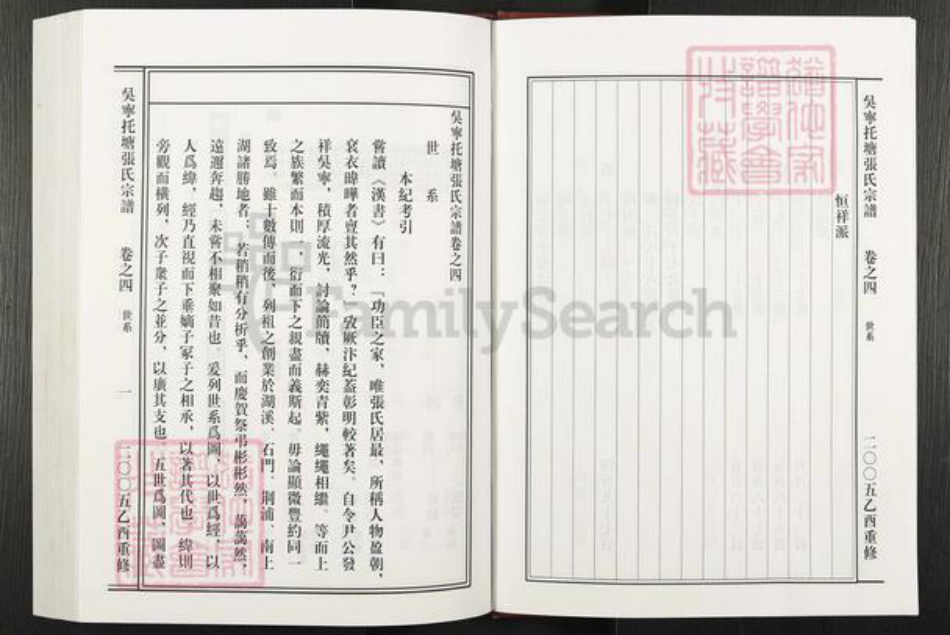 吳寧托塘張氏宗譜 卷之四 世系 二〇〇五乙酉重修
恒祥派
吳寧托塘張氏宗譜卷之四
世系
本紀考引
嘗讀《漢書》有曰：「功臣之家，唯張氏居最，所稱人物盈朝，
袞衣暐曄者亶其然乎？攷厥汴紀蓋彰明較著矣。自令尹公發
祥吳寧，積厚流光，討論簡牘，赫奕青紫，繩繩相繼。等而上
之族繁而本則一，衍而下之親盡而義斯起。毋論顯微豐約同一
致焉。雖十數傳而後，列祖之創業於湖溪、石門、荊浦、南上
湖諸勝地者；若稍稍有分析乎，而慶賀祭弔彬彬然，藹藹然，
遠邇奔趨，未嘗不相聚如昔也。爰列世系爲圖，以世爲經，以
人爲緯，經乃直視而下垂嫡子冢子之相承，以著其代也。緯則
旁觀而橫列，次子衆子之並分，以廣其支也。五世爲圖，圖盡
吳寧托塘張氏宗譜 卷之四 世系 一 二〇〇五乙酉重修
FamilySearch